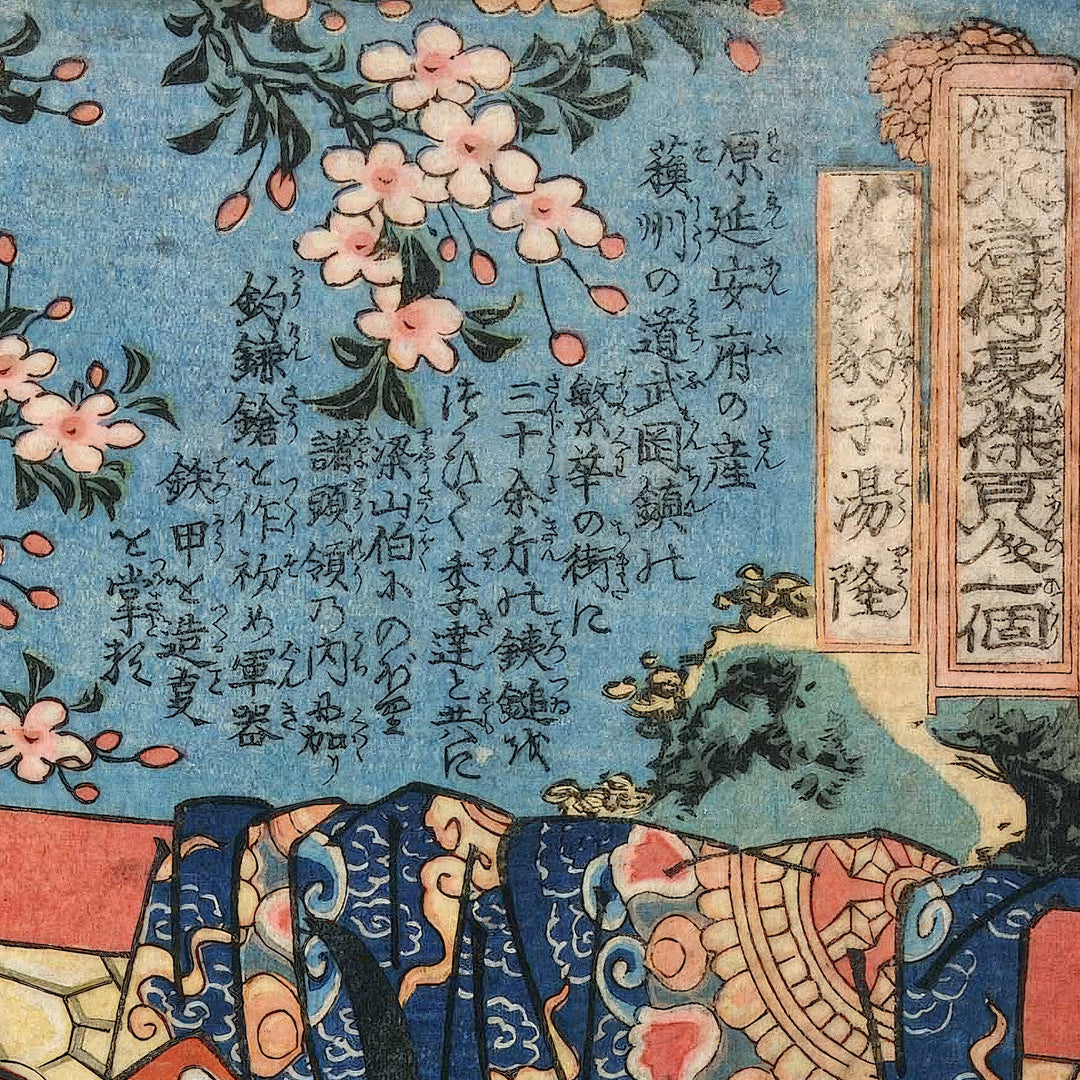 通俗水滸傳豪傑百八人一個
金銭豹子湯隆
原延安府の産
蘓州の道武岡鎮の
繁華の街に
三十余斤の銕鎚を
李逵と共に
梁山伯にのぼり
諸頭領の内に加り
鈎鎌鎗を作初め軍器
鉄甲を造支
を掌る